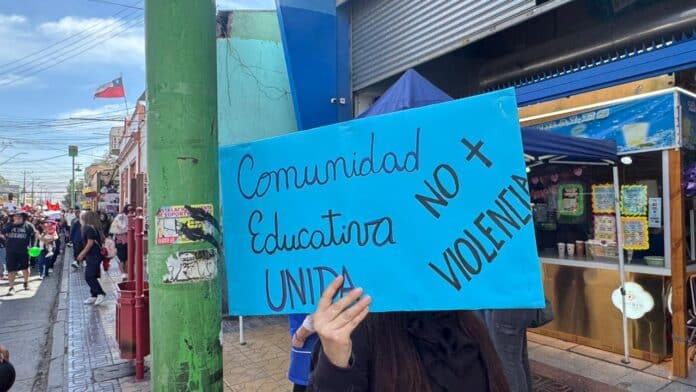 Comunidad
Educativa
UNIDA
NO +
VIOLENCIA